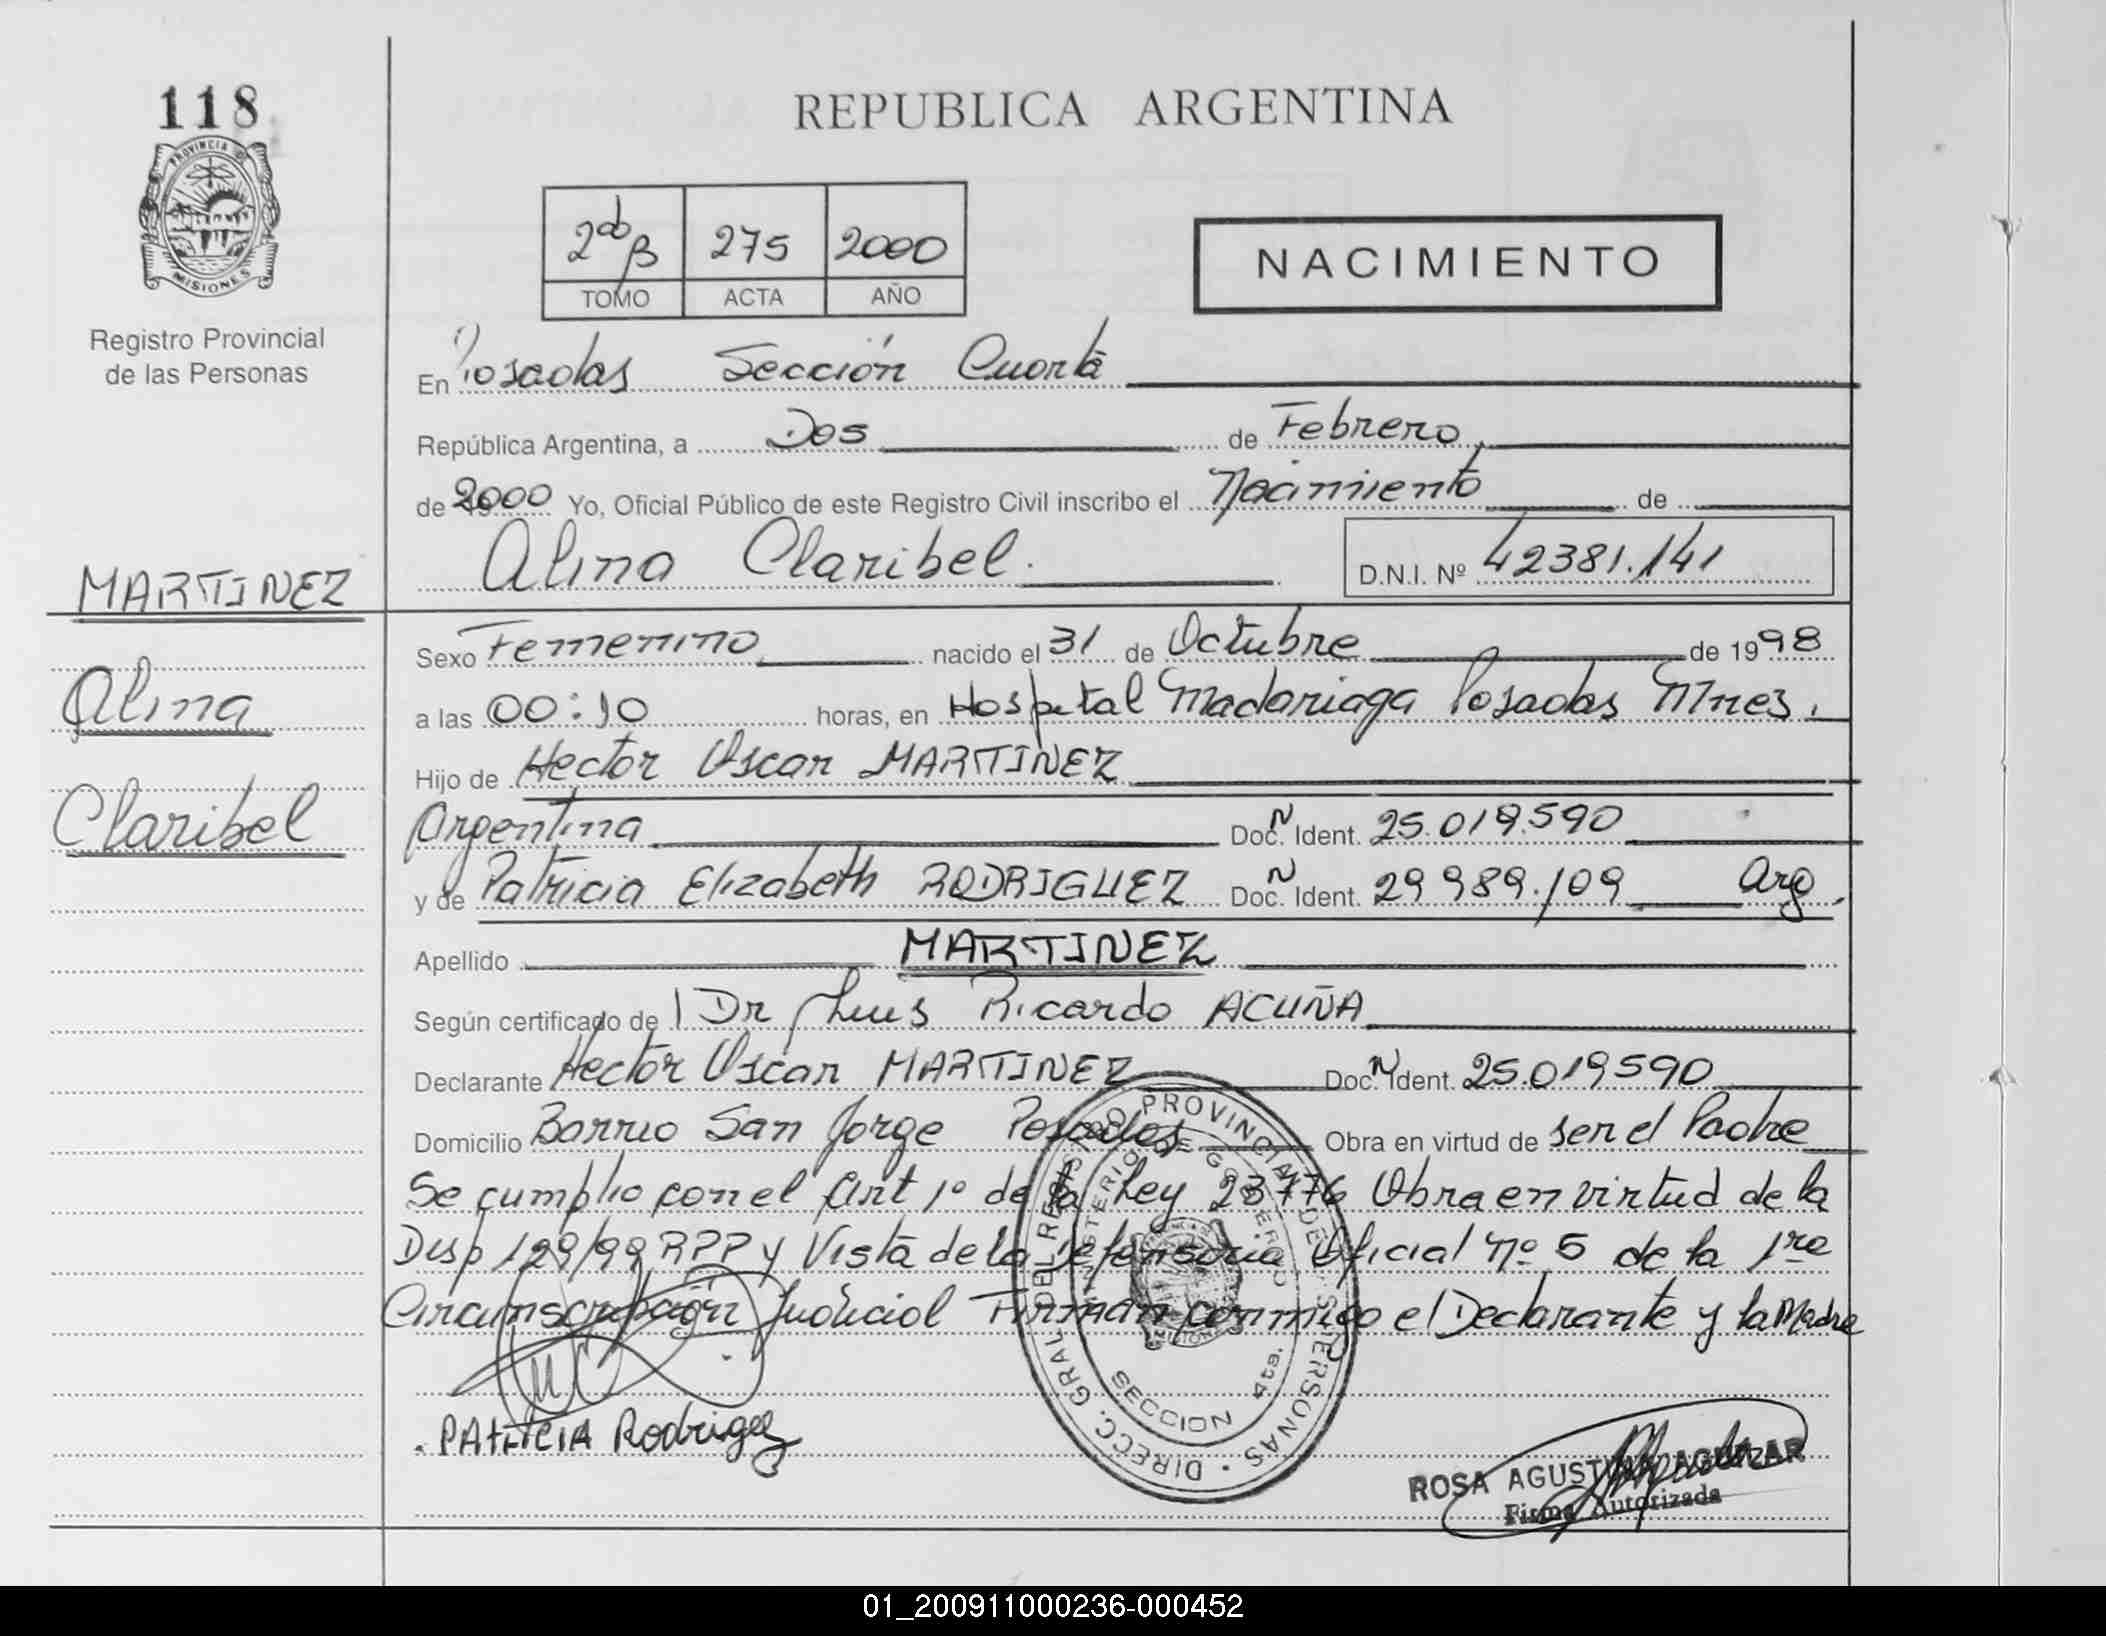 118
PROVINCIA DE
MISIONES
Registro Provincial
de las Personas
MARTINEZ
Alina
Claribel
REPUBLICA ARGENTINA
2do B 275 2000
TOMO ACTA AÑO
NACIMIENTO
En Posadas Sección Cuarta
República Argentina, a Dos de Febrero
de 2000 Yo, Oficial Público de este Registro Civil inscribo el Nacimiento de
Alina Claribel. D.N.I. Nº 42381.141
Sexo Femenino nacido el 31 de Octubre de 1998
a las 00:10 horas, en Hospital Madariaga Posadas Mnes.
Hijo de Hector Oscar MARTINEZ
Argentina Doc. N Ident. 25.019.590
y de Patricia Elizabeth RODRIGUEZ Doc. N Ident. 29989.109 Arg.
Apellido MARTINEZ
Según certificado de Dr Luis Ricardo ACUÑA
Declarante Hector Oscar MARTINEZ Doc. N Ident. 25.019590
Domicilio Barrio San Jorge Posadas Obra en virtud de ser el Padre
Se cumplio con el Art 1º de la Ley 23776 Obra en virtud de la
Disp 129/99 RPP y Vista de la Defensoria Oficial Nº 5 de la 1re
Circunscripción Judicial Firman conmigo el Declarante y la Madre
DIRECC. GRAL. DEL REGISTRO PROVINCIAL DE LAS PERSONAS
MINISTERIO DE GOBIERNO
SECCION 4ta.
PAtRICIA Rodriguez
ROSA AGUSTINA AGUIZAR
Firma Autorizada
01_200911000236-000452